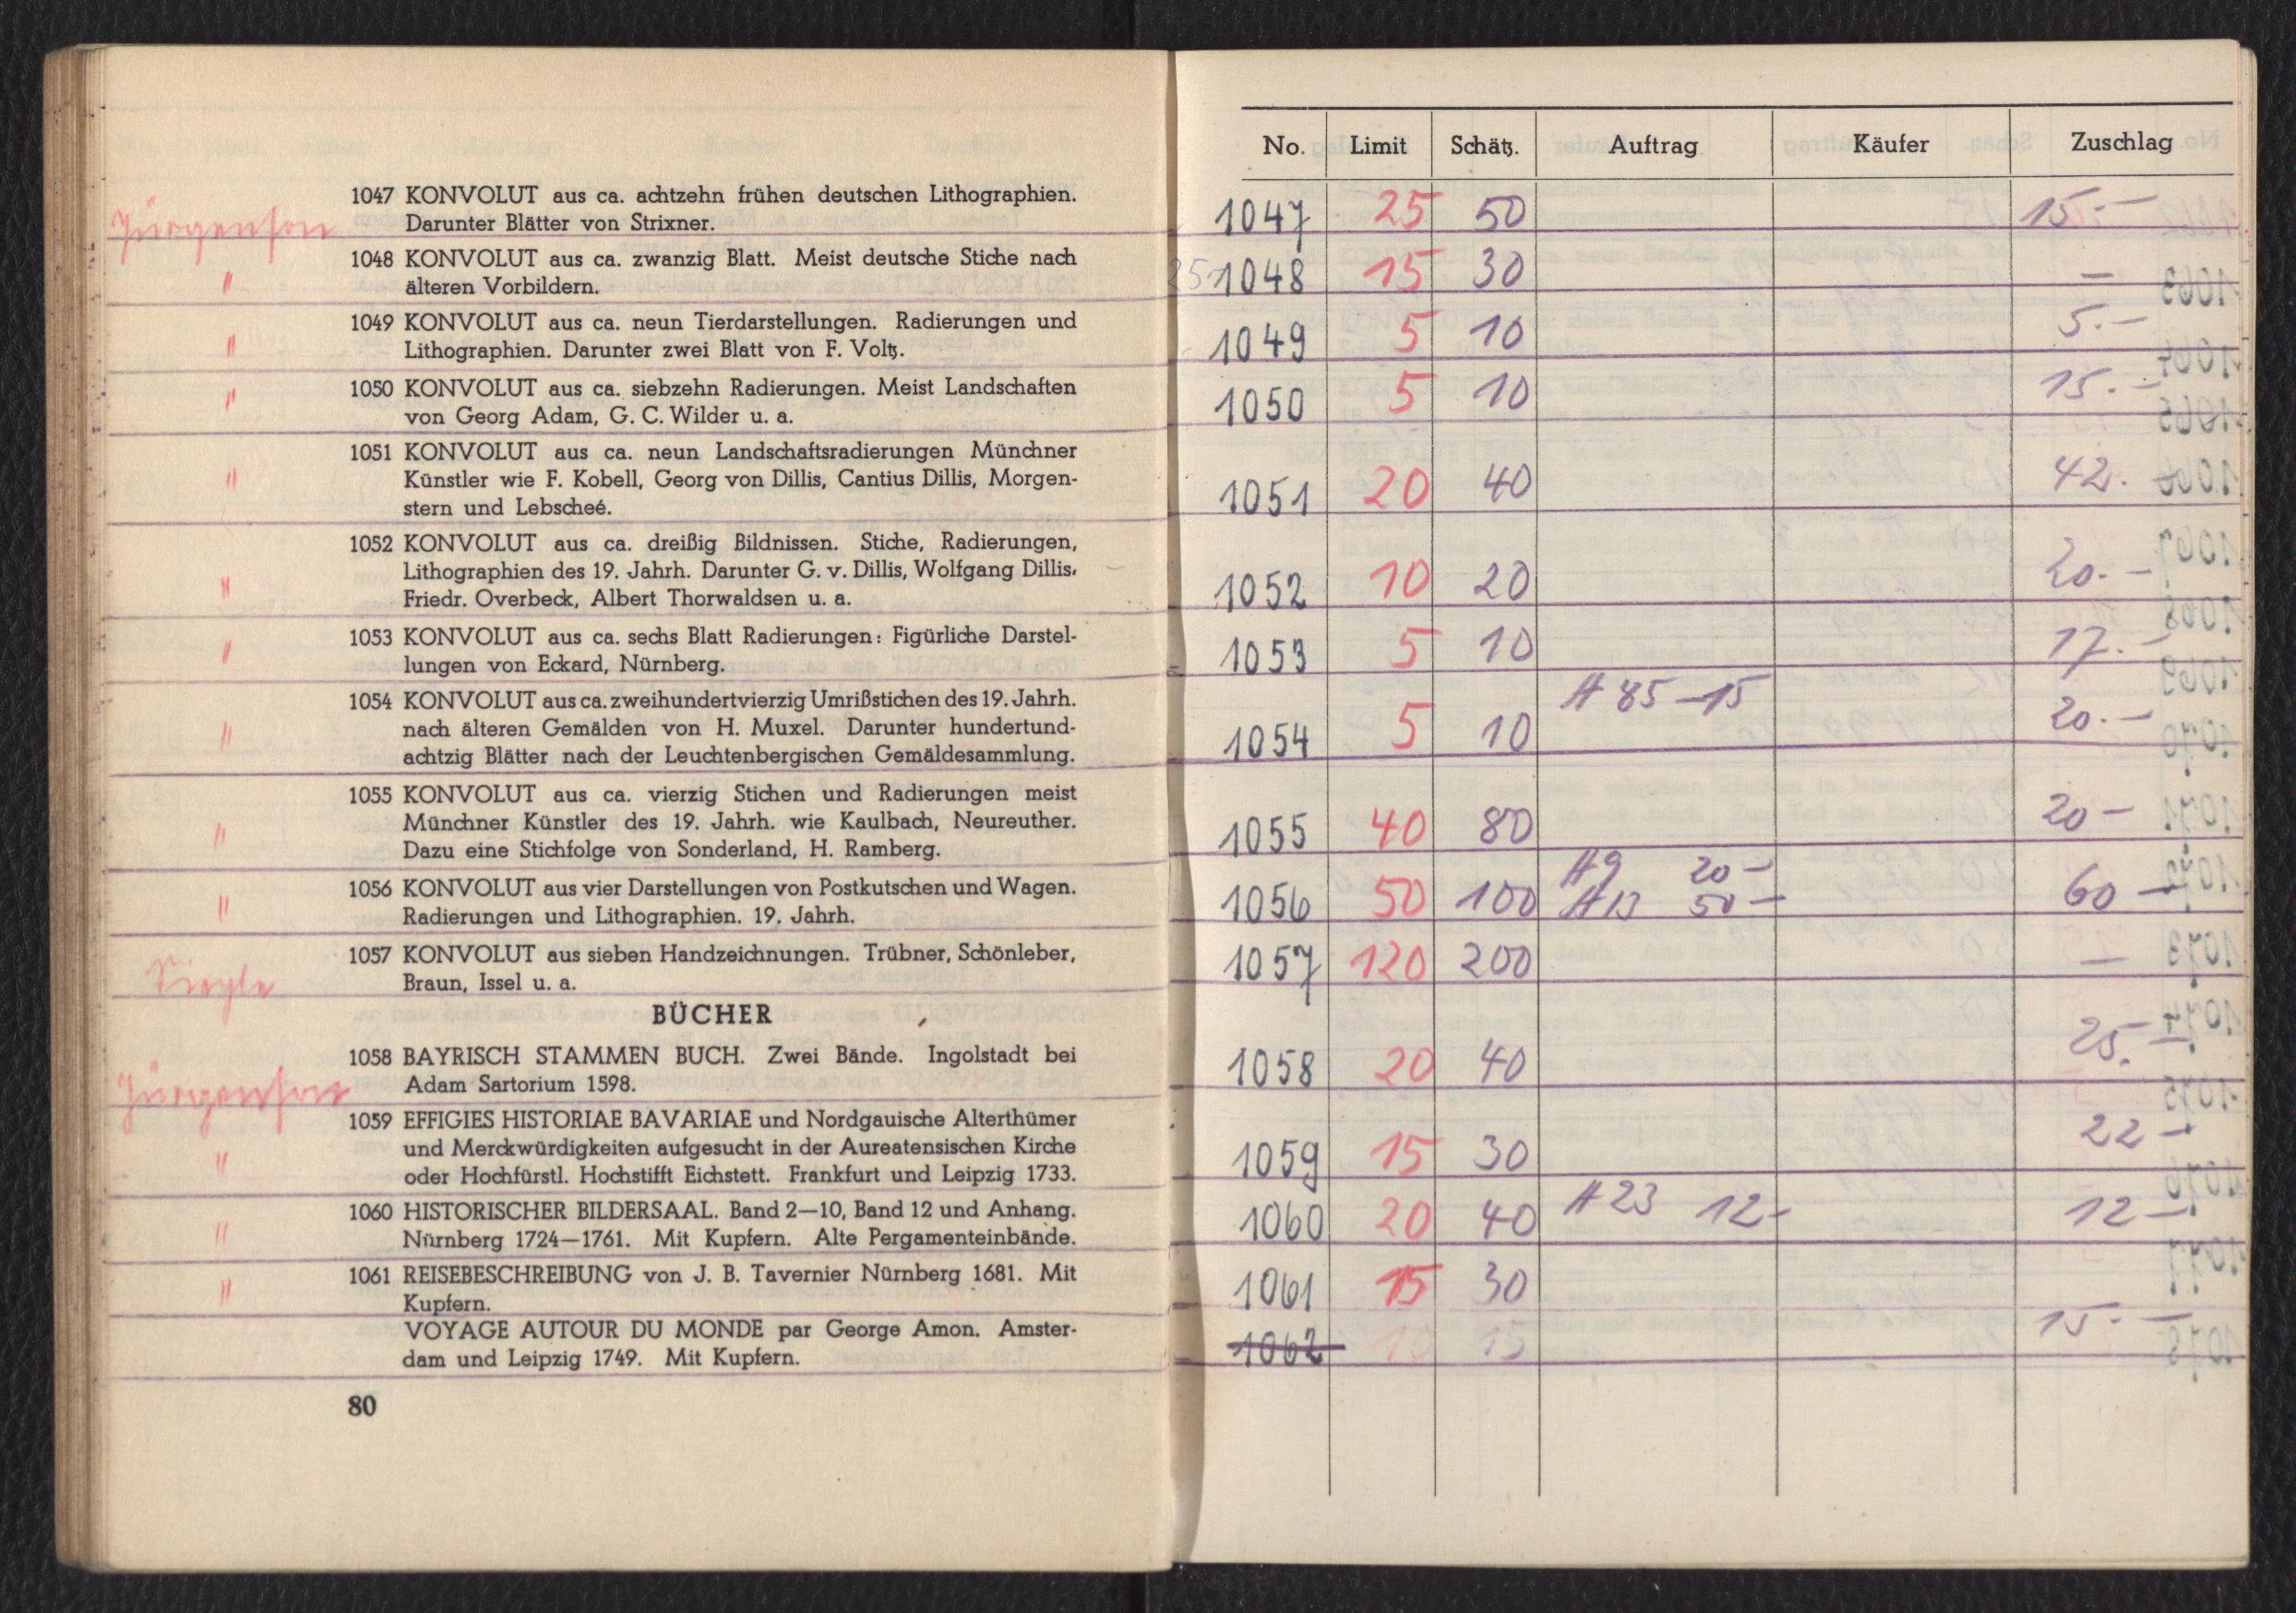 Jürgenson
1047 KONVOLUT aus ca. achtzehn frühen deutschen Lithographien.
Darunter Blätter von Strixner.
"
1048 KONVOLUT aus ca. zwanzig Blatt. Meist deutsche Stiche nach
älteren Vorbildern.
"
1049 KONVOLUT aus ca. neun Tierdarstellungen. Radierungen und
Lithographien. Darunter zwei Blatt von F. Voltz.
"
1050 KONVOLUT aus ca. siebzehn Radierungen. Meist Landschaften
von Georg Adam, G. C. Wilder u. a.
"
1051 KONVOLUT aus ca. neun Landschaftsradierungen Münchner
Künstler wie F. Kobell, Georg von Dillis, Cantius Dillis, Morgen-
stern und Lebscheé.
"
1052 KONVOLUT aus ca. dreißig Bildnissen. Stiche, Radierungen,
Lithographien des 19. Jahrh. Darunter G. v. Dillis, Wolfgang Dillis.
Friedr. Overbeck, Albert Thorwaldsen u. a.
"
1053 KONVOLUT aus ca. sechs Blatt Radierungen: Figürliche Darstel-
lungen von Eckard, Nürnberg.
"
1054 KONVOLUT aus ca. zweihundertvierzig Umrißstichen des 19. Jahrh.
nach älteren Gemälden von H. Muxel. Darunter hundertund-
achtzig Blätter nach der Leuchtenbergischen Gemäldesammlung.
"
1055 KONVOLUT aus ca. vierzig Stichen und Radierungen meist
Münchner Künstler des 19. Jahrh. wie Kaulbach, Neureuther.
Dazu eine Stichfolge von Sonderland, H. Ramberg.
"
1056 KONVOLUT aus vier Darstellungen von Postkutschen und Wagen.
Radierungen und Lithographien. 19. Jahrh.
Siegle
1057 KONVOLUT aus sieben Handzeichnungen. Trübner, Schönleber,
Braun, Issel u. a.
BÜCHER
Jürgenson
1058 BAYRISCH STAMMEN BUCH. Zwei Bände. Ingolstadt bei
Adam Sartorium 1598.
"
1059 EFFIGIES HISTORIAE BAVARIAE und Nordgauische Alterthümer
und Merckwürdigkeiten aufgesucht in der Aureatensischen Kirche
oder Hochfürstl. Hochstifft Eichstett. Frankfurt und Leipzig 1733.
"
1060 HISTORISCHER BILDERSAAL. Band 2—10, Band 12 und Anhang.
Nürnberg 1724—1761. Mit Kupfern. Alte Pergamenteinbände.
"
1061 REISEBESCHREIBUNG von J. B. Tavernier Nürnberg 1681. Mit
Kupfern.
VOYAGE AUTOUR DU MONDE par George Amon. Amster-
dam und Leipzig 1749. Mit Kupfern.
80
No. Limit Schätz. Auftrag Käufer Zuschlag
1047 25 50 15.—
1048 15 30 —
1049 5 10 5.—
1050 5 10 15.—
1051 20 40 42.—
1052 10 20 20.—
1053 5 10 17.—
1054 5 10 A 85 — 15 20.—
1055 40 80 20—
A 9 20—
1056 50 100 A 13 50— 60—
1057 120 200 —
1058 20 40 25.—
1059 15 30 22—
1060 20 40 A 23 12— 12—
1061 15 30
1062 10 15 15.—